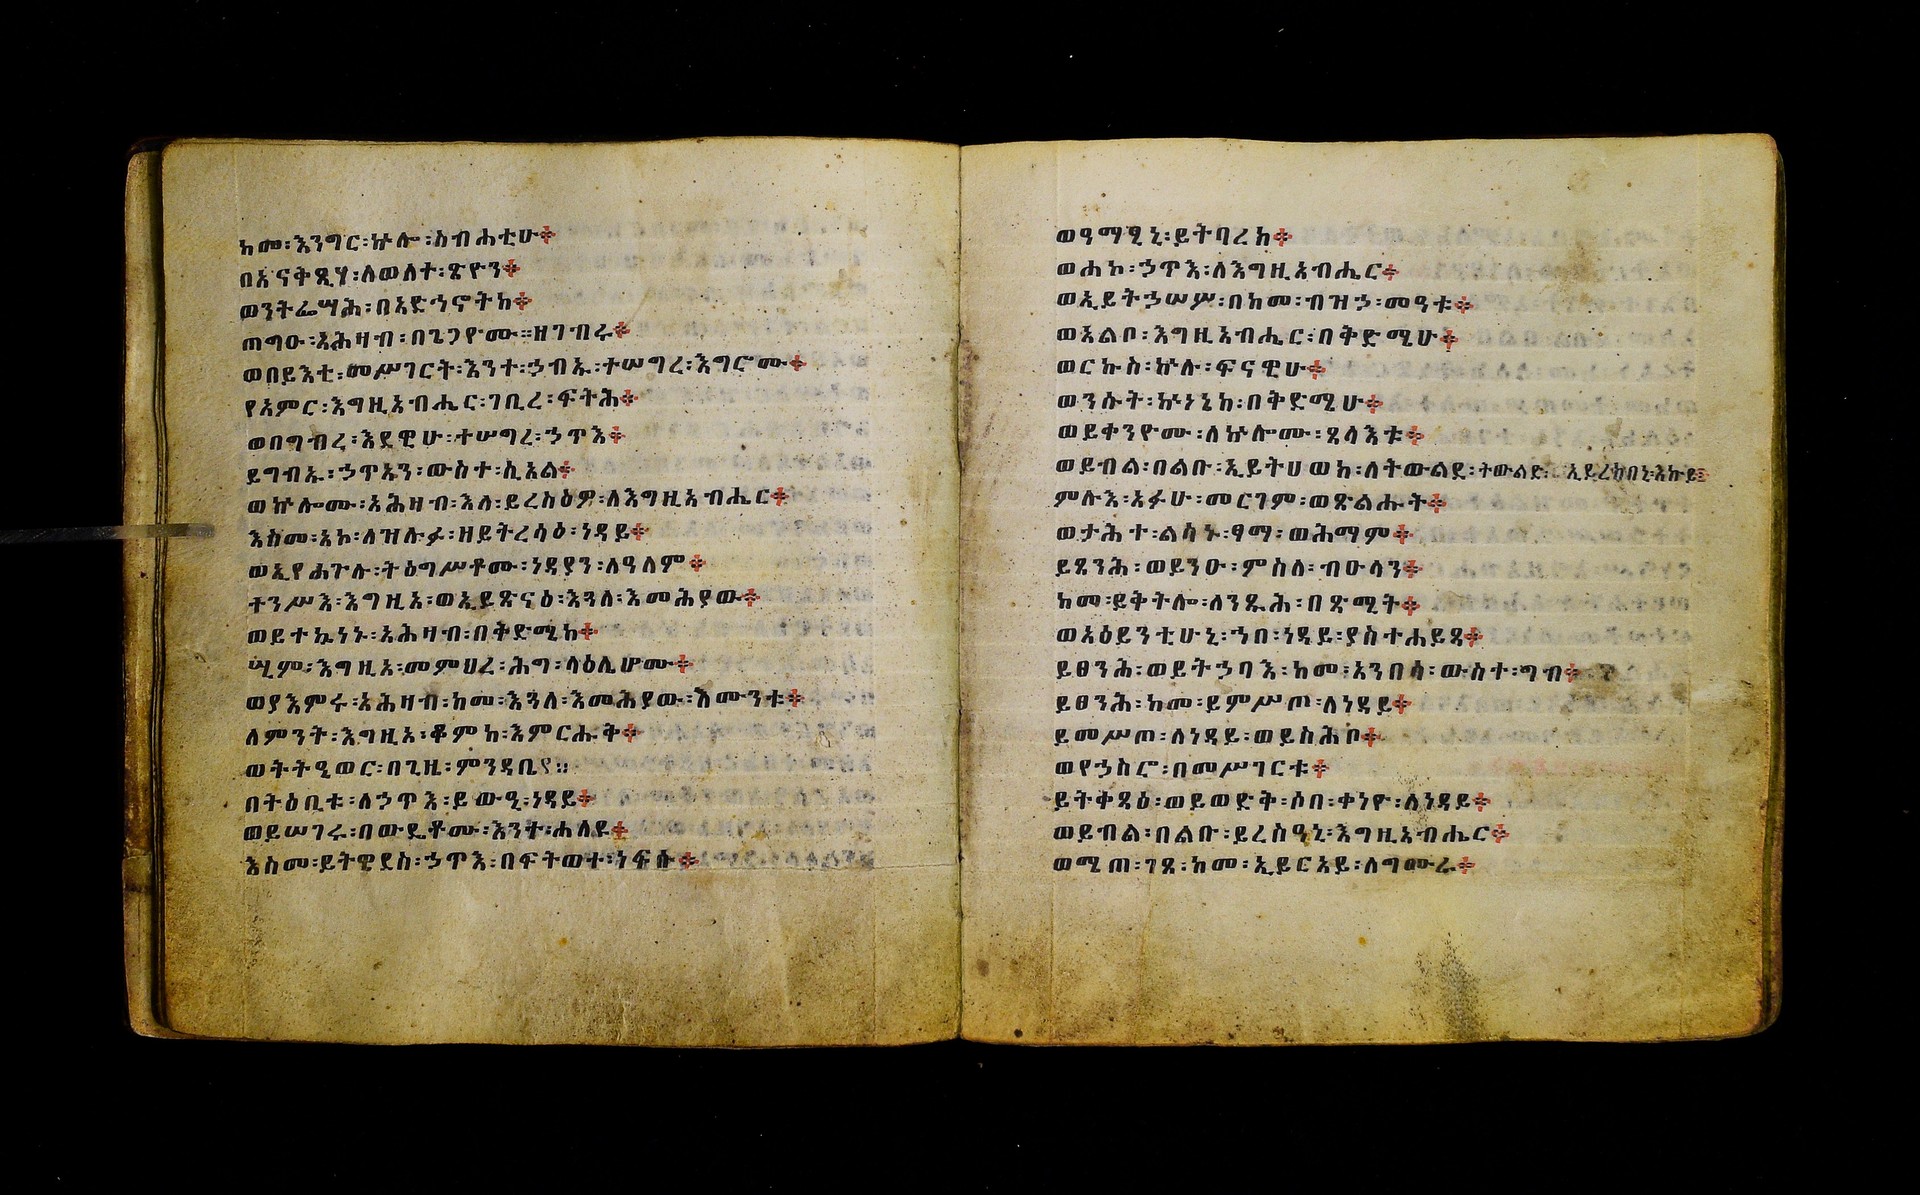 ከመ፡እንግር፡ኵሎ፡ስብሐቲሁ፨
በአናቅጺሃ፡ለወለተ፡ጽዮን፨
ወንትፌሣሕ፡በአድኅኖትከ፨
ጠግዑ፡አሕዛብ፡በጌጋዮሙ፡፡ዘገብሩ፨
ወበይእቲ፡መሥገርት፡እንተ፡ኃብኡ፡ተሠግረ፡እግሮሙ፨
የአምር፡እግዚአብሔር፡ገቢረ፡ፍትሕ፨
ወበግብረ፡እደዊሁ፡ተሠግረ፡ኃጥእ፨
ይግብኡ፡ኃጥአን፡ውስተ፡ሲኦል፨
ወኵሎሙ፡አሕዛብ፡እለ፡ይረስዕዎ፡ለእግዚአብሔር፨
እስመ፡አኮ፡ለዝሉፉ፡ዘይትረሳዕ፡ነዳይ፨
ወኢየሐጕሉ፡ትዕግሥቶሙ፡ነዳያን፡ለዓለም፨
ተንሥእ፡እግዚኦ፡ወኢይጽናዕ፡እጓለ፡እመሕያው፨
ወይተኴነኑ፡አሕዛብ፡በቅድሜከ፨
ሢም፡እግዚኦ፡መምህረ፡ሕግ፡ላዕሌሆሙ፨
ወያእምሩ፡አሕዛብ፡ከመ፡እጓለ፡እመሕያው፡እሙንቱ፨
ለምንት፡እግዚኦ፡ቆምከ፡እምርሑቅ፨
ወትትዔወር፡በጊዜ፡ምንዳቤየ፡፡
በትዕቢቱ፡ለኃጥእ፡ይውዒ፡ነዳይ፨
ወይሠገሩ፡በውዴቶሙ፡እንተ፡ሐለዩ፨
እስመ፡ይትዌደስ፡ኃጥእ፡በፍትወተ፡ነፍሱ፨
ወዓማፂኒ፡ይትባረክ፨
ወሐኮ፡ኃጥእ፡ለእግዚአብሔር፨
ወኢይትኃሠሦ፡በከመ፡ብዝኃ፡መዓቱ፨
ወአልቦ፡እግዚአብሔር፡በቅድሜሁ፨
ወርኩስ፡ኵሉ፡ፍናዊሁ፨
ወንሱት፡ኵነኔከ፡በቅድሜሁ፨
ወይቀንዮሙ፡ለኵሎሙ፡ጸላእቱ፨
ወይብል፡በልቡ፡ኢይትሀወክ፡ለትውልደ፡ትውልድ፡ ኢይረክበኒ፡እኩይ፨
ምሉእ፡አፉሁ፡መርገም፡ወጽልሑት፨
ወታሕተ፡ልሳኑ፡ፃማ፡ወሕማም፨
ይጸንሕ፡ወይንዑ፡ምስለ፡ብዑላን፨
ከመ፡ይቅትሎ፡ለንጹሕ፡በጽሚት፨
ወአዕይንቲሁኒ፡ኀበ፡ነዳይ፡ያስተሐይጻ፨
ይፀንሕ፡ወይትኃባእ፡ከመ፡አንበሳ፡ውስተ፡ግብ፨
ይፀንሕ፡ከመ፡ይምሥጦ፡ለነዳይ፨
ይመሥጦ፡ለነዳይ፡ወይስሕቦ፨
ወየኃስሮ፡በመሥገርቱ፨
ይትቀጻዕ፡ወይወድቅ፡ሶበ፡ቀነዮ፡ለነዳይ፨
ወይብል፡በልቡ፡ይረስዓኒ፡እግዚአብሔር፨
ወሜጠ፡ገጸ፡ከመ፡ኢይርአይ፡ለግሙራ፨